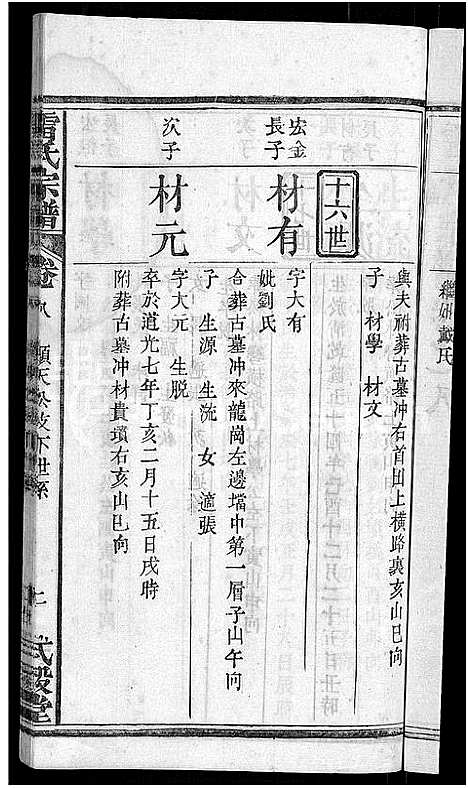 繼妣戴氏
與夫祔葬古墓冲右首田上橫路裏亥山巳向
子 材學 材文
十六世
宏金長子
材有
字大有
妣劉氏
合葬古墓冲來龍崗左邊壋中第一層子山午向
子 生源 生洗 女適張
次子
材元
字大元 生脫
卒於道光七年丁亥二月十五日戌時
附葬古墓冲材貴墳右亥山巳向
雷氏宗譜
卷
順天公政下世系
式穀堂